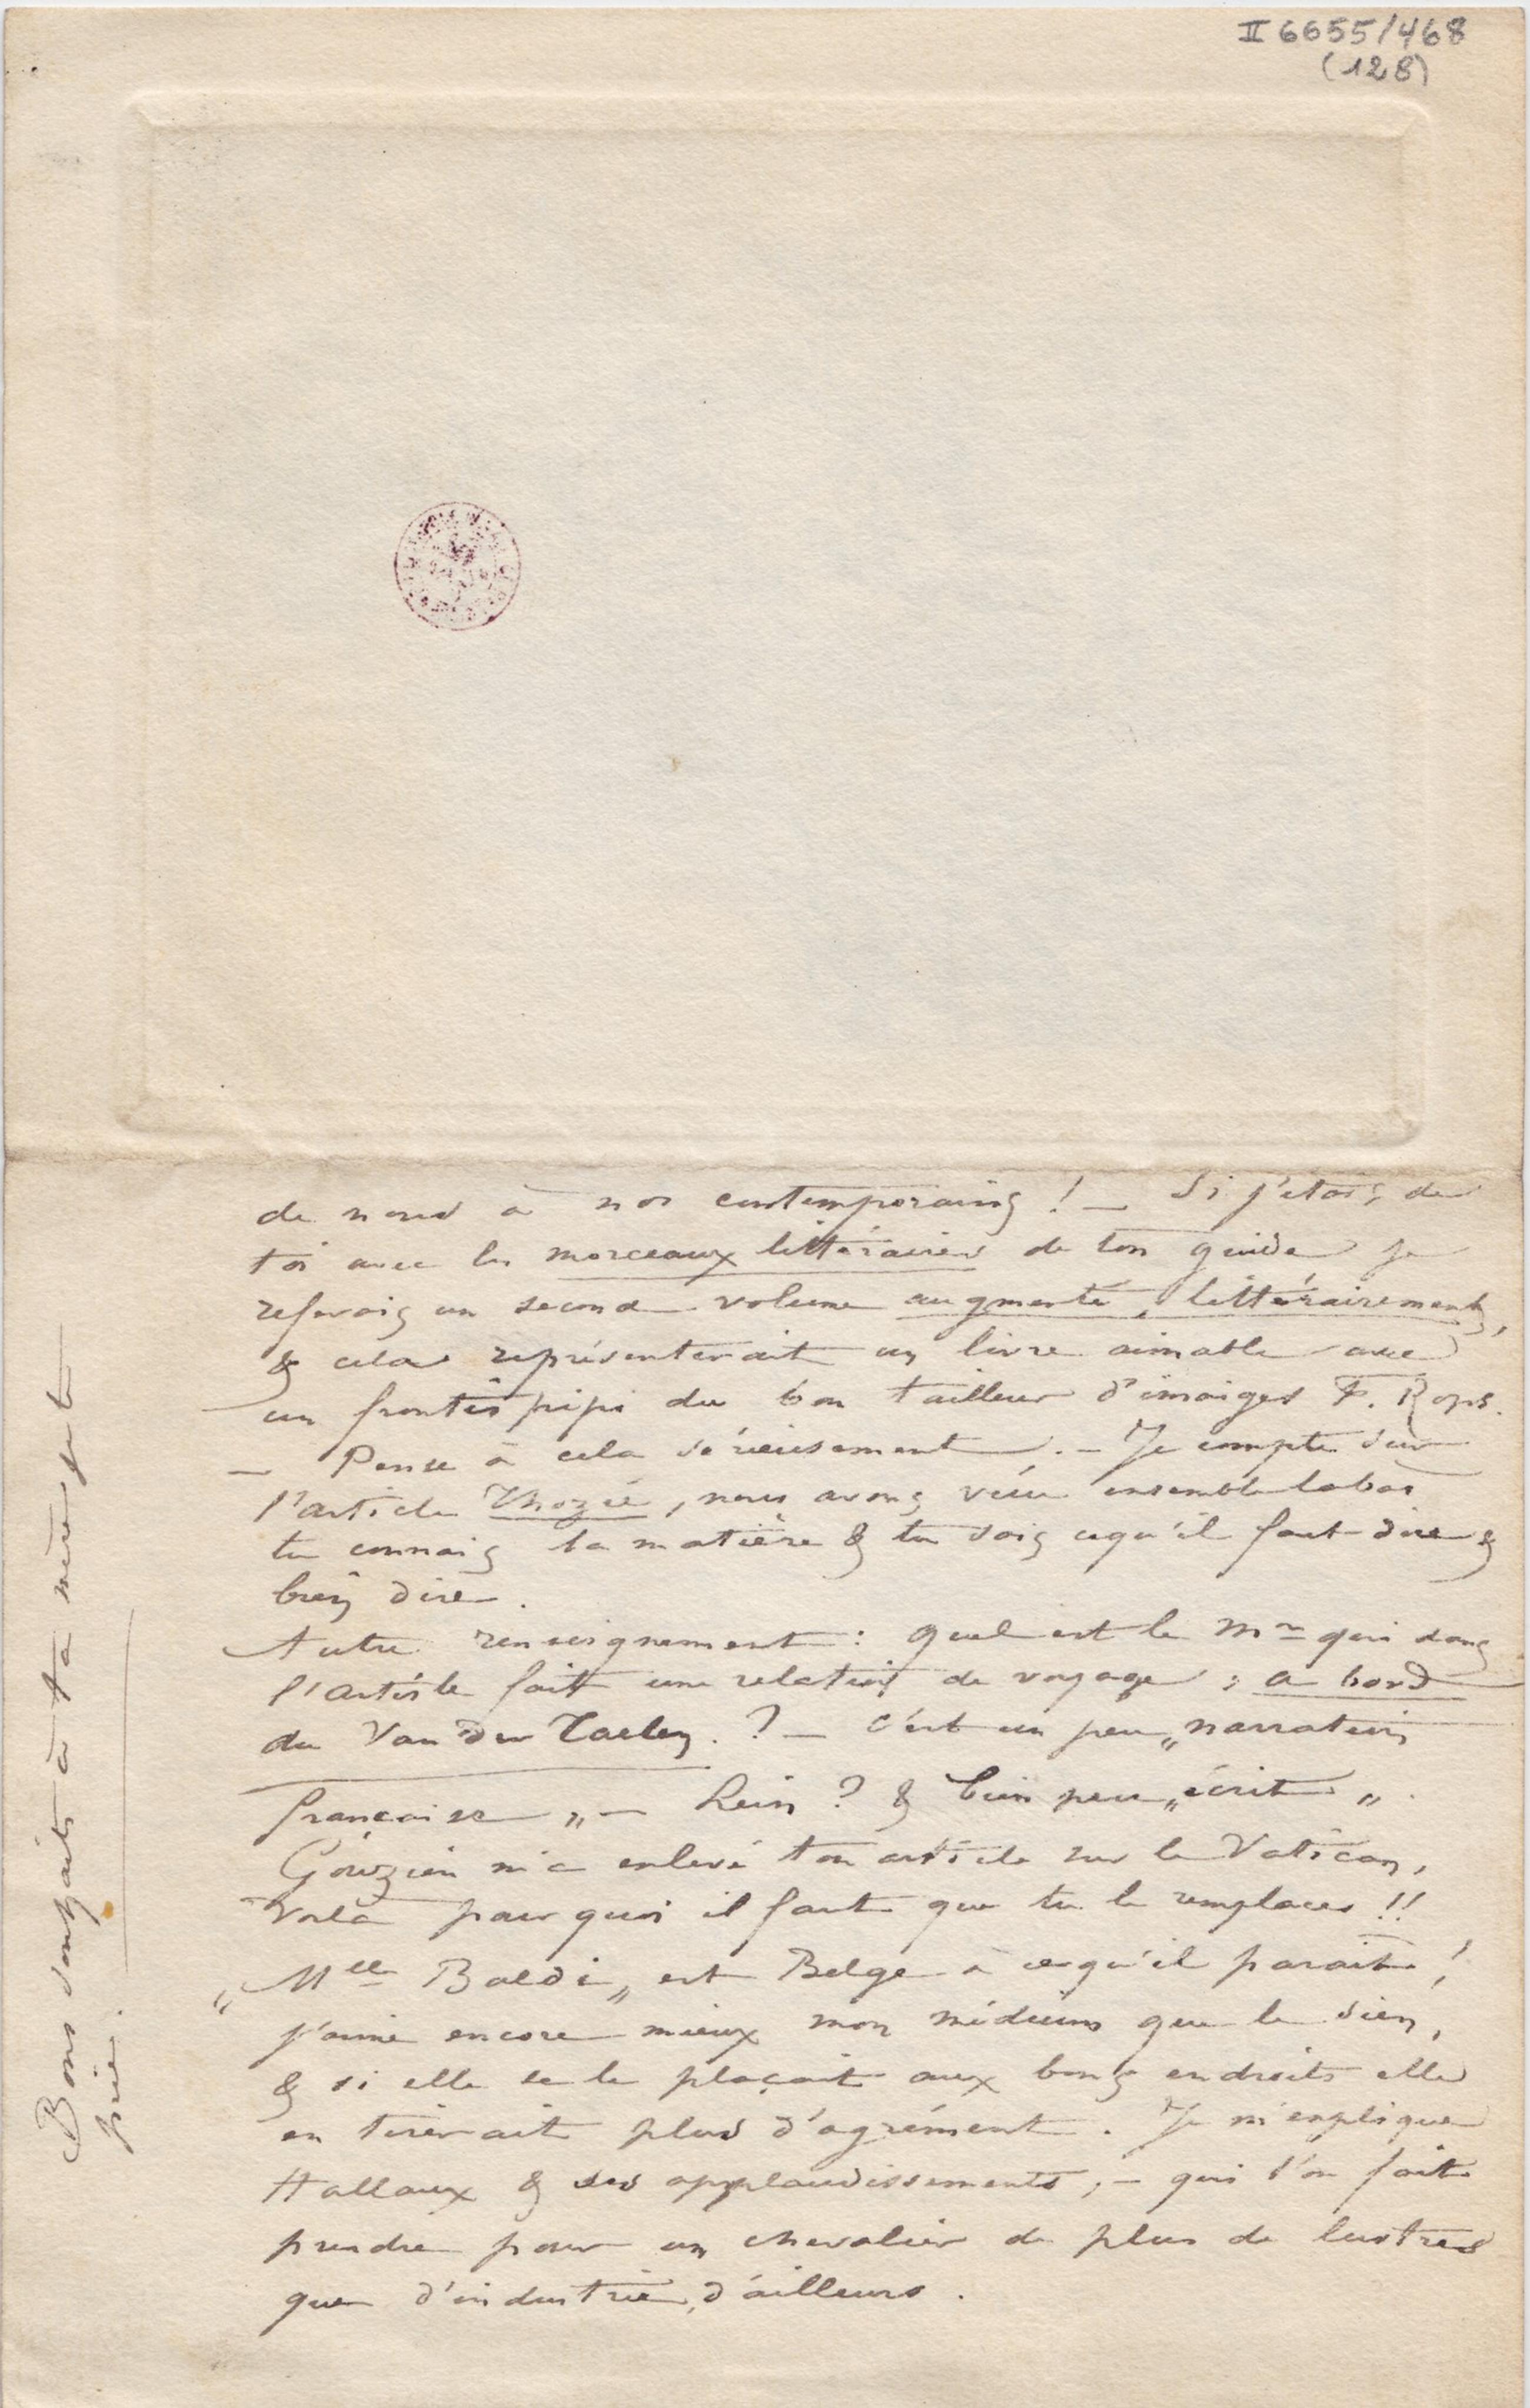 II 6655/468
(128)
de nous à nos contemporains ! — Si j'etais de
toi avec les morceaux littéraires de ton guide je
referais un second volume augmenté, littérairement,
& cela représenterait un livre aimable avec
un frontispipi du bon tailleur d'imaiges F. Rops.
— Pense à cela sérieusement. — Je compte sur
l'article Thozée, nous avons vécu ensemble labas
tu connais la matière & tu sais cequ'il faut dire &
bien dire.
Autre renseignement : quel est le Mr qui dans
l'artiste fait une relation de voyage : a bord
du Van der Taelen. ? — c'est un peu „narration
française „ — hein ? & bien peu „écrit „.
Gouzien m'a enlevé ton article sur le Vatican,
Voilà pourquoi il faut que tu le remplaces !!
„Mlle Baldi„ est Belge à cequ'il parait !
j'aime encore mieux mon médium que le sien,
& si elle se le plaçait aux bons endroits elle
en tirerait plus d'agrément. Je m'explique
Hallaux & ses applaudissements, — qui l'on fait
prendre pour un chevalier de plus de lustres
que d'industrie, d'ailleurs.
Bons souhaits à ta mère je te
prie.